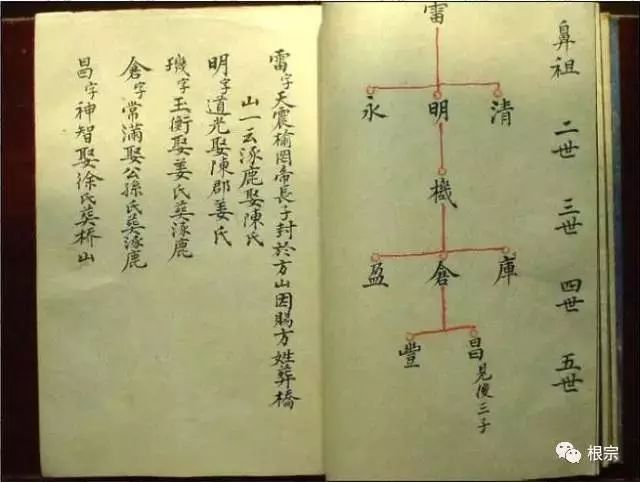 鼻祖 二世 三世 四世 五世
雷
清 明 永
機
庫 倉 盈
昌 豐
見後三子
雷字天震榆罔帝長子封於方山因賜方姓葬橋
山一云涿鹿娶陳氏
明字道光娶陳郡姜氏
璣字玉衡娶姜氏葬涿鹿
倉字常滿娶公孫氏葬涿鹿
昌字神智娶徐氏葬橋山
根宗